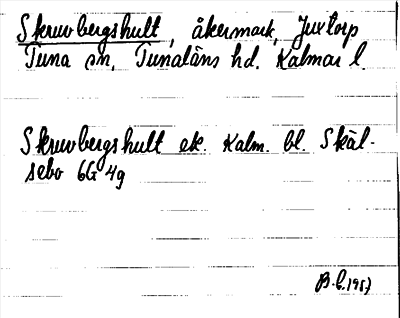 Skruvbergshult, åkermark, Juxtorp
Tuna sn, Tunaläns hd. Kalmar l.
Skruvbergshult ek. Kalm. bl. Skäl-
sebo 6G 4g